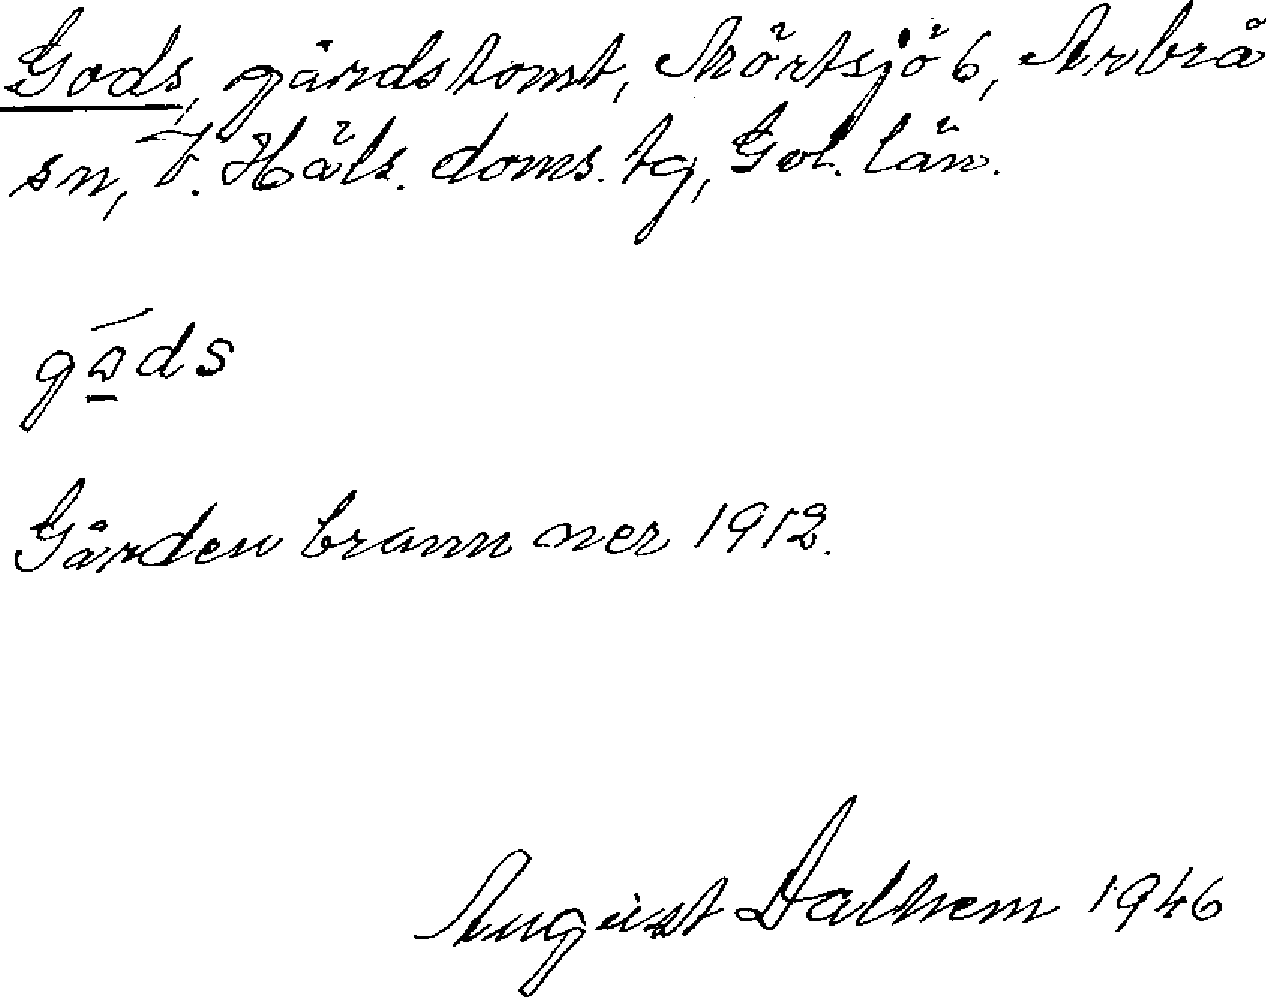 Gods, gårdstomt, Mörtsjö 6, Arbrå
sn, V. Häls. doms. tg, Gvl. län.
gods
Gården brann ner 1912.
August Dalhem 1946